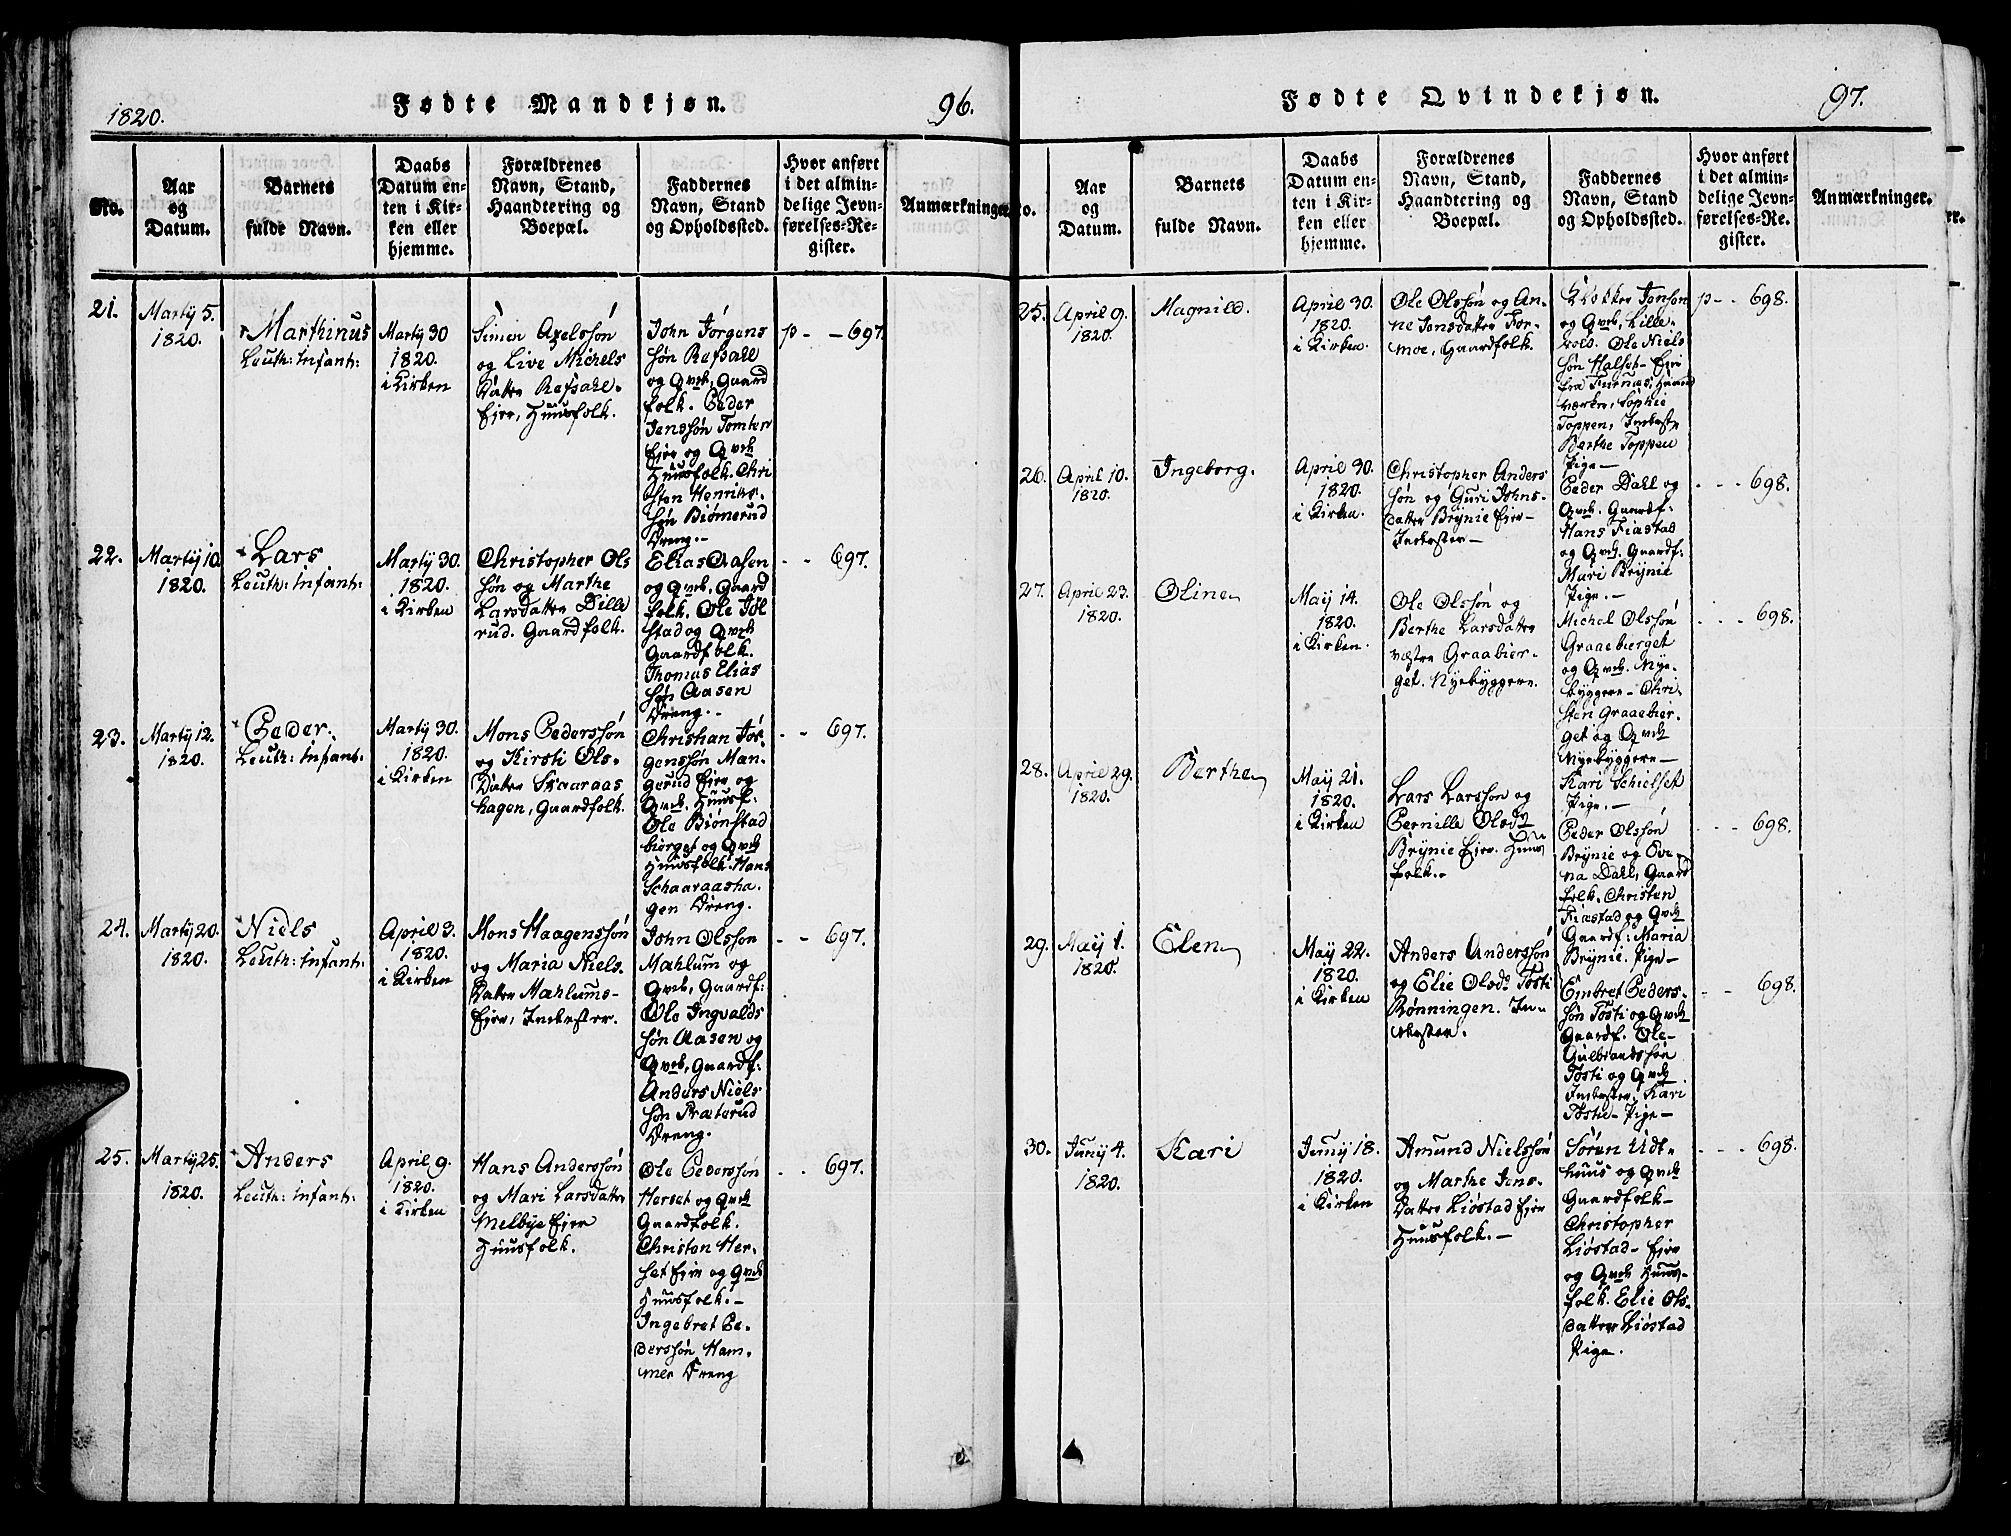 1820.
Fødte Mandkjøn.
96.
No.
Aar
og
Datum.
Barnets
fulde Navn.
Daabs
Datum en-
ten i Kir-
ken eller
hjemme.
Forældrenes
Navn, Stand,
Haandtering og
Boepæl.
Faddernes
Navn, Stand
og Opholdssted.
Hvor anført
i det almin-
delige Jevn-
førelses-Re-
gister.
Anmærkninger.
21.
Martÿ 5.
1820.
Marthinus
Leuth: Infant:
Martÿ 30
1820.
i Kirken
Simen Axelssøn
og Live Michels
Datter Refsahl-
Ejer, Huusfolk.
John Jørgens
søn Refsahl
og Qvek, Gaard
folk. Peder
Jenssøn Tomter
Ejer og Qvek
Huusfolk. Chri
sten Henriks-
søn Biømerud
Dreng.-
p - - 697.
22.
Martÿ 10
1820.
Lars
Leuth: Infant:
Martÿ 30.
1820.
i Kirken
Christopher Ols
søn og Marthe
Larsdatter Dille
rud. Gaardfolk.
Elias Aasen
og Qvek, Gaard
folk. Ole Jøl
stad og Qvek
Gaardfolk.
Thomas Elias
søn Aasen
Dreng.-
- - 697.
23.
Martÿ 12.
1820.
Peder.
Leuth: Infant:
Martÿ 30.
1820.
i Kirken
Mons Pederssøn
og Kirsti Ols-
Datter Skaaraas
hagen, Gaardfolk.
Christian Jør-
genssøn Man-
gerud Ejer og
Qvek. Huusf:
Ole Biønstad
bierget og Qvek
Huusfolk. Hans
Schaaraasha-
gen Dreng.
- - 697.
24.
Martÿ 20.
1820.
Niels
Leuth: Infant:
April 3.
1820.
i Kirken
Mons Haagenssøn
og Maria Niels-
Datter Mæhlums-
Ejer, Inderster.
John Olsson
Mæhlum og
Qvek, Gaardf:
Ole Ingvalds
søn Aasen og
Qvek, Gaardf:
Anders Niels
søn Præterud
Dreng.
- - 697.
25.
Martÿ 25.
1820.
Anders
Leuth: Infant:
April 9.
1820.
i Kirken
Hans Anderssøn
og Mari Larsdatter
Melbÿe Ejer
Huusfolk.
Ole Pederssøn
Herset og Qvek
Gaardfolk.
Christen Her-
set Ejer og Qvek
Huusfolk.-
Ingebret Pe-
derssøn Ham-
mer Dreng
- - 697.
Fødte Qvindekjøn.
97.
No.
Aar
og
Datum.
Barnets
fulde Navn.
Daabs
Datum en-
ten i Kir-
ken eller
hjemme.
Forældrenes
Navn, Stand,
Haandtering og
Boepæl.
Faddernes
Navn, Stand
og Opholdssted.
Hvor anført
i det almin-
delige Jevn-
førelses-Re-
gister.
Anmærkninger.
25.
April 9.
1820.
Magnild.
April 30.
1820.
i Kirken.
Ole Olssøn og An-
ne Jensdatter For-
moe, Gaardfolk.
Klokker Jenson
og Qvek, Lille-
vold. Ole Niels
søn Halset- Ejer
fra Furnæs, Haand
værker, Sophie
Toppen, Inderst-
Berthe Toppen
Pige-
p - - 698.
26.
April 10.
1820.
Ingeborg.
April 30.
1820.
i Kirken.
Christopher Anders
søn og Guri Johns-
datter Brÿnie Ejer-
Inderster-
Peder Dahl og
Qvek. Gaardf-
Hans Fiæstad
og Qvek. Gaardf:
Mari Brÿnie
Pige.-
- - - 698.
27.
April 23.
1820.
Oline
Maÿ 14.
1820.
i Kirken.
Ole Olssøn og
Berthe Larsdatter
væstre Graabier-
get. Nyebyggere.
Michel Olssøn
Graaebierget
og Qvek. Nye-
byggere- Chri-
sten Graaebier-
get og Qvek
Nyebyggere-
Kari Schielset
Pige.-
- - - 698.
28.
April 29.
1820.
Berthe
Maÿ 21.
1820.
i Kirken
Lars Larssøn og
Pernille Olsd
Brÿnie Ejer. Huus
folk.-
Peder Olssøn
Brÿnie og Ove-
na Dahl, Gaard
folk. Christen
Fiæstad og Qvek
Gaardf: Maria
Brÿnie. Pige-
- - - 698.
29.
Maÿ 1.
1820.
Elen
Maÿ 22.
1820.
i Kirken
Anders Anderssøn
og Elie Olsd. Tosti
Rønningen. In-
derster.
Embret Peders-
søn Tosti og Qvek
Gaardf. Ole-
Gulbrandssøn
Tosti og Qvek
Inderster. Kari
Tostie- Pige-
- - 698.
30.
Junÿ 4.
1820.
Kari
Junÿ 18.
1820.
i Kirken
Amund Nielssøn
og Marthe Jens-
Datter Liøstad Ejer
Huusfolk.-
Søren Udt-
huus og Qvek
Gaardfolk-
Christopher
Liøstad- Ejer
og Qvek Huus-
folk. Elie Ols-
datter Liøstad
Pige.
- - - 698.